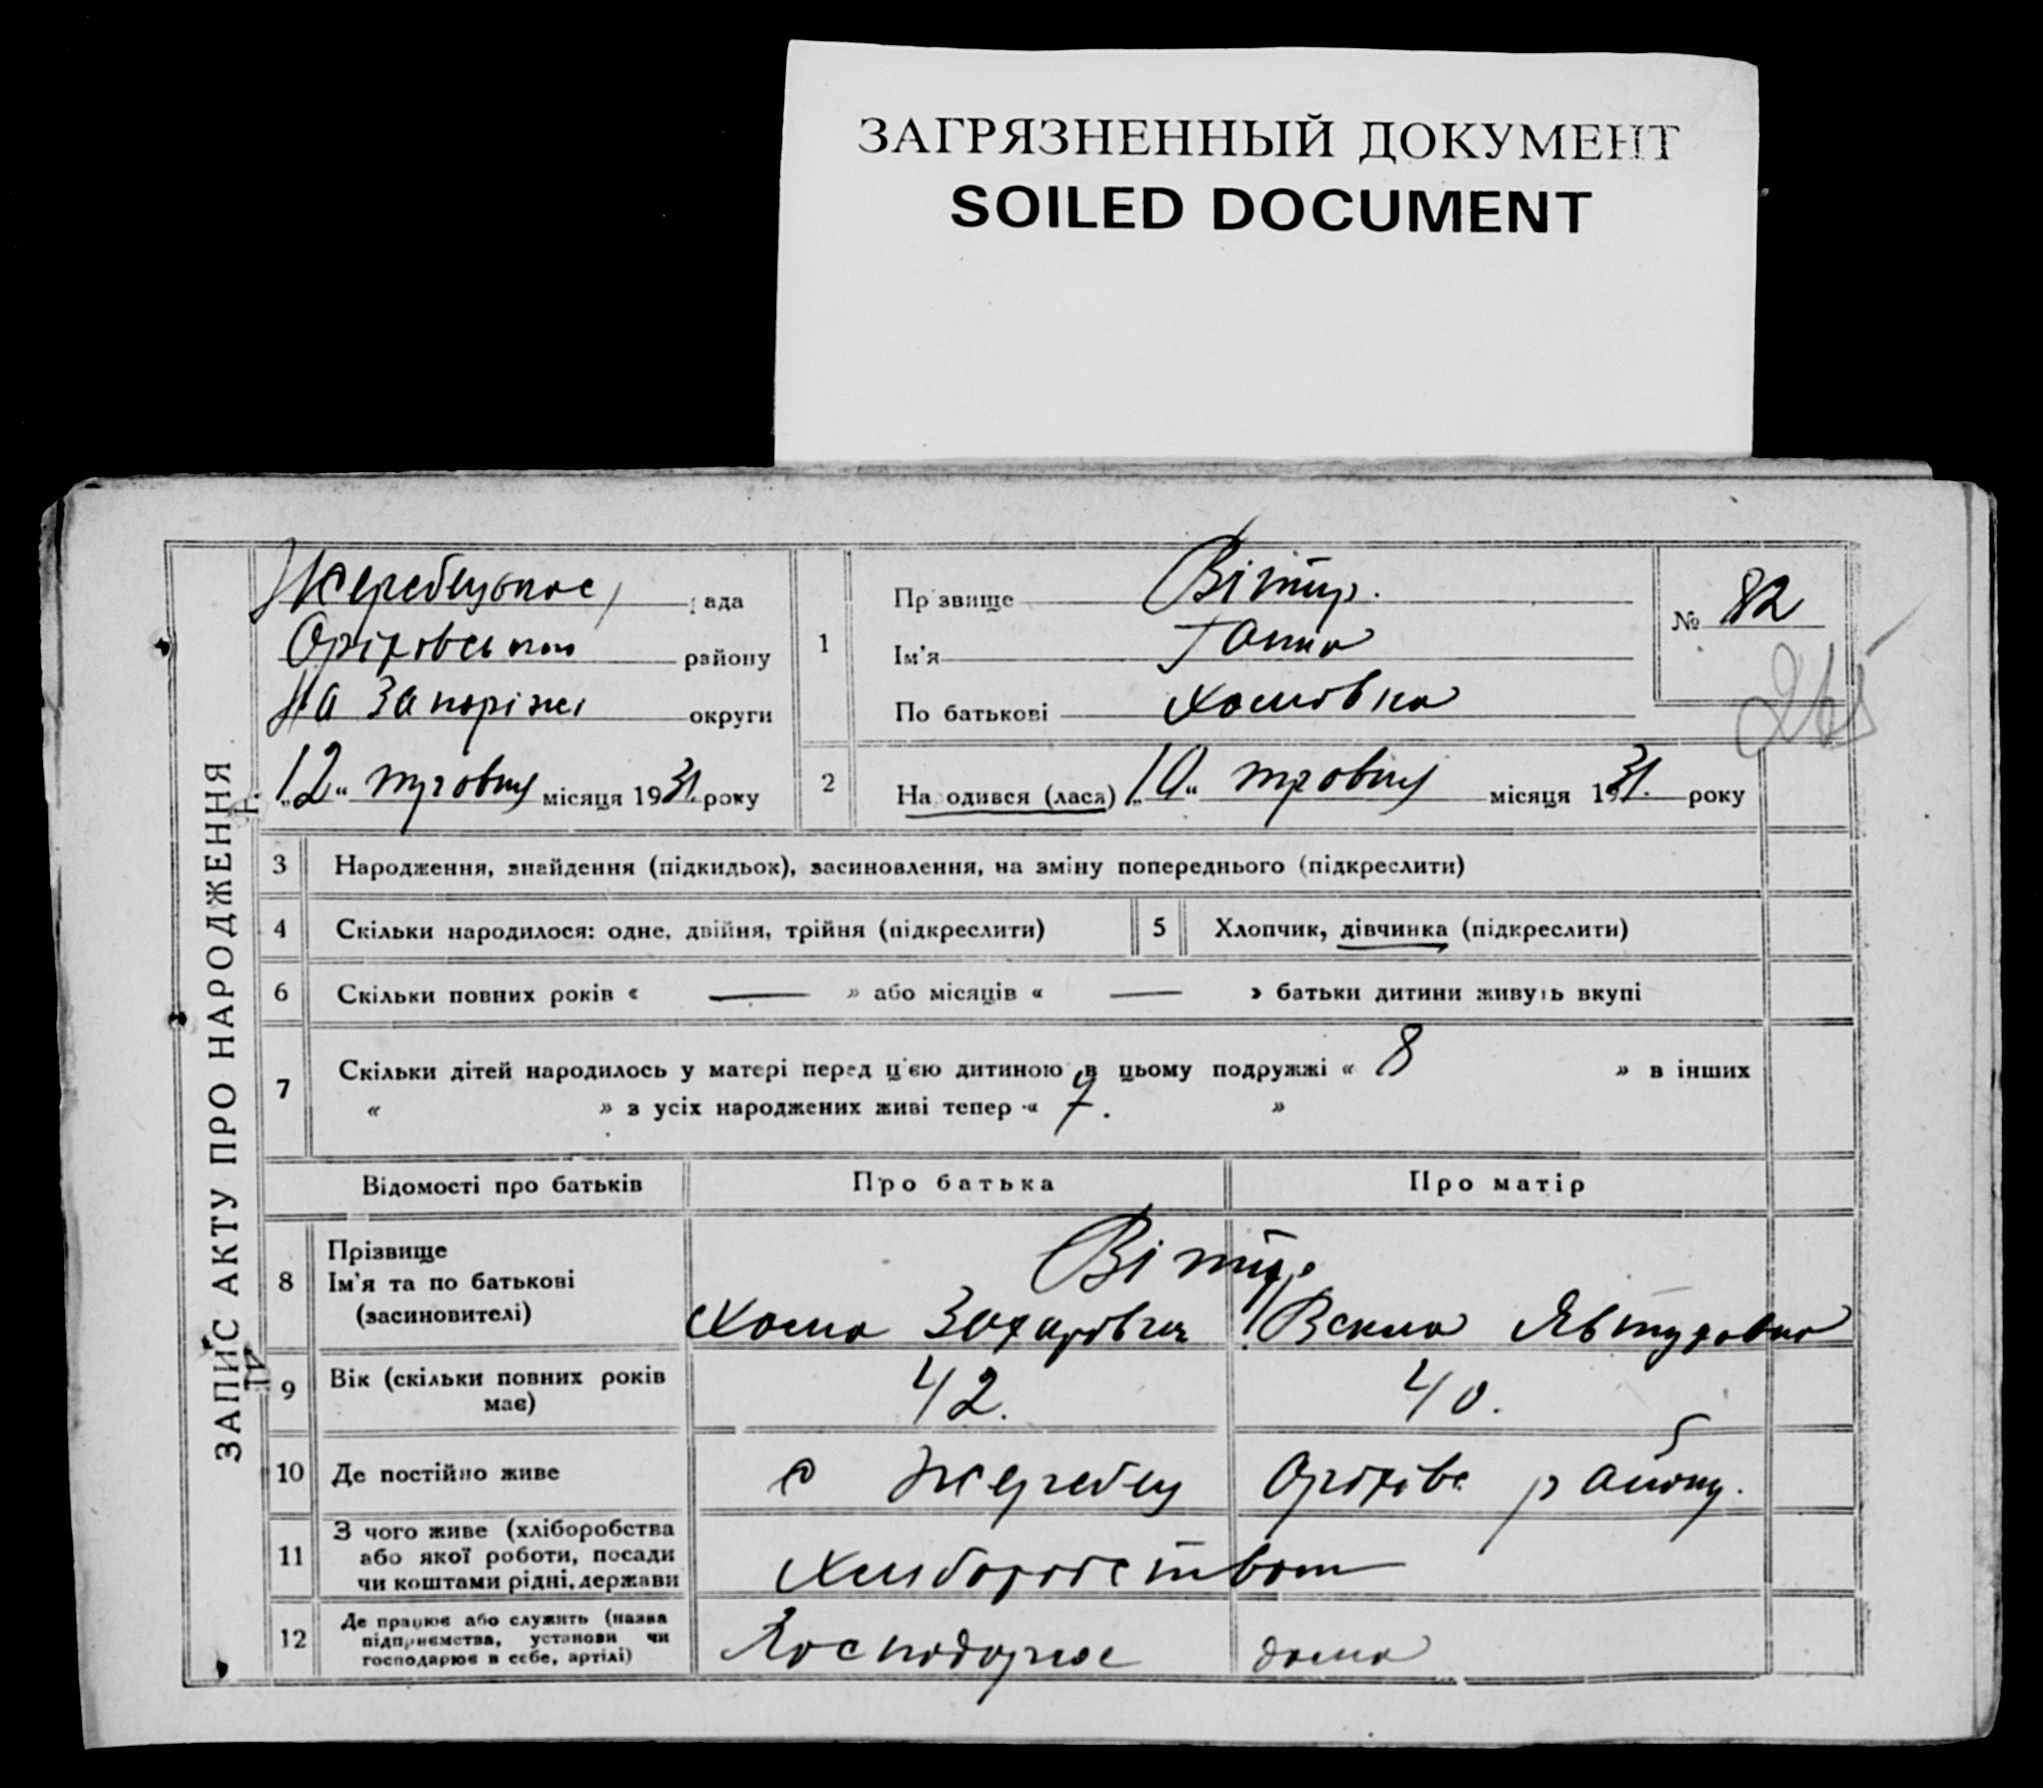 ЗАГРЯЗНЕННЫЙ ДОКУМЕНТ
SOILED DOCUMENT
ЗАПИС АКТУ ПРО НАРОДЖЕННЯ
Жеребецькос рада
Оріхівського району
На Запоріжі округи
„12“ травня місяця 1931. року
1
Прізвище Вітир.
Ім'я Ганна
По батькові Хомовна
№ 82
2 Народився (лася) „10“ травня місяця 1931. року
3 Народження, знайдення (підкидьок), засиновлення, на зміну попереднього (підкреслити)
4 Скільки народилося: одне, двійня, трійня (підкреслити) 5 Хлопчик, дівчинка (підкреслити)
6 Скільки повних років « — » або місяців « — » батьки дитини живуть вкупі
7 Скільки дітей народилось у матері перед цією дитиною в цьому подружжі « 8 » в інших
« » з усіх народжених живі тепер « 7. »
Відомості про батьків Про батька Про матір
8 Прізвище
Ім'я та по батькові
(засиновителі)
Вітир
Хома Захарович Векла Явтуховна
9 Вік (скільки повних років має) 42. 40.
10 Де постійно живе с Жеребец Оріхівс району.
11 З чого живе (хліборобства
або якої роботи, посади
чи коштами рідні, держави
Хліборобством
12 Де працює або служить (назва
підприємства, установи чи
господарює в себе, артілі)
Господарює дома